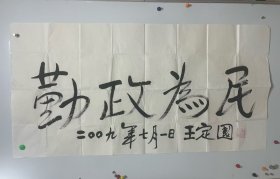 勤政為民
二〇〇九年七月一日 王定國